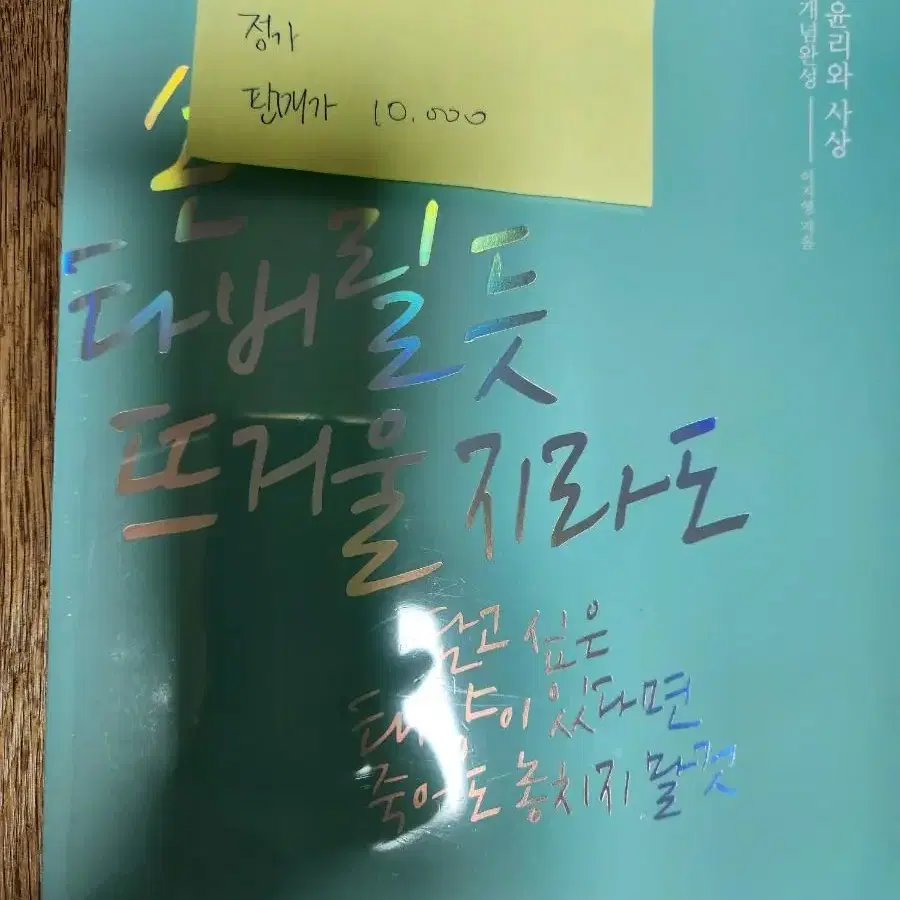 정가
판매가 10.000
윤리와 사상
개념완성
이지영 지음
손
타버릴 듯
뜨거울 지라도
닮고 싶은
태양이 있다면
죽어도 놓치지 말 것